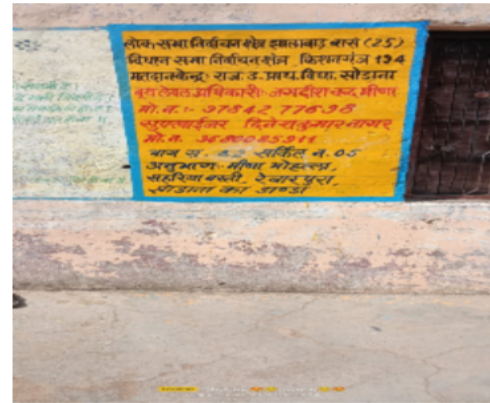 लोक सभा निर्वाचन क्षेत्र झालावाड़ बारां (25)
विधान सभा निर्वाचन क्षेत्र, किशनगंज 194
मतदान केन्द्र राज. उ. प्राथ. विद्या. सोडाना
बूथ लेवल अधिकारी:- जगदीश चन्द मीणा
मो. न. :- 9784277698
सुपरवाईजर दिनेश कुमार नागर
मो. न.
सर्किल न. 05
अनुभाग:- मीणा मोहल्ला,
सहरिया बस्ती, रेबारपुरा,
सोडाना का डाण्डा